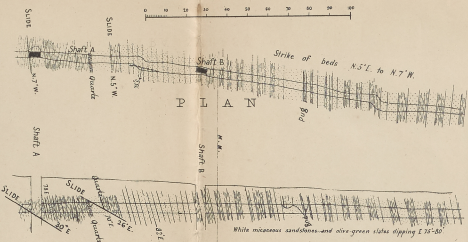 0 10 20 30 40 50 60 70 80
SLIDE
SLIDE
Shaft A
Shaft B
Strike of beds N.5°E. to N.7°W.
N.7°W.
Quartz
N.5°W.
PLAN
Bug
Shaft A
Shaft B
N.W.
SLIDE
SLIDE
Quartz
Quartz
30°E.
26°E.
White micaceous sandstones and olive-green slates dipping E 75°-80°